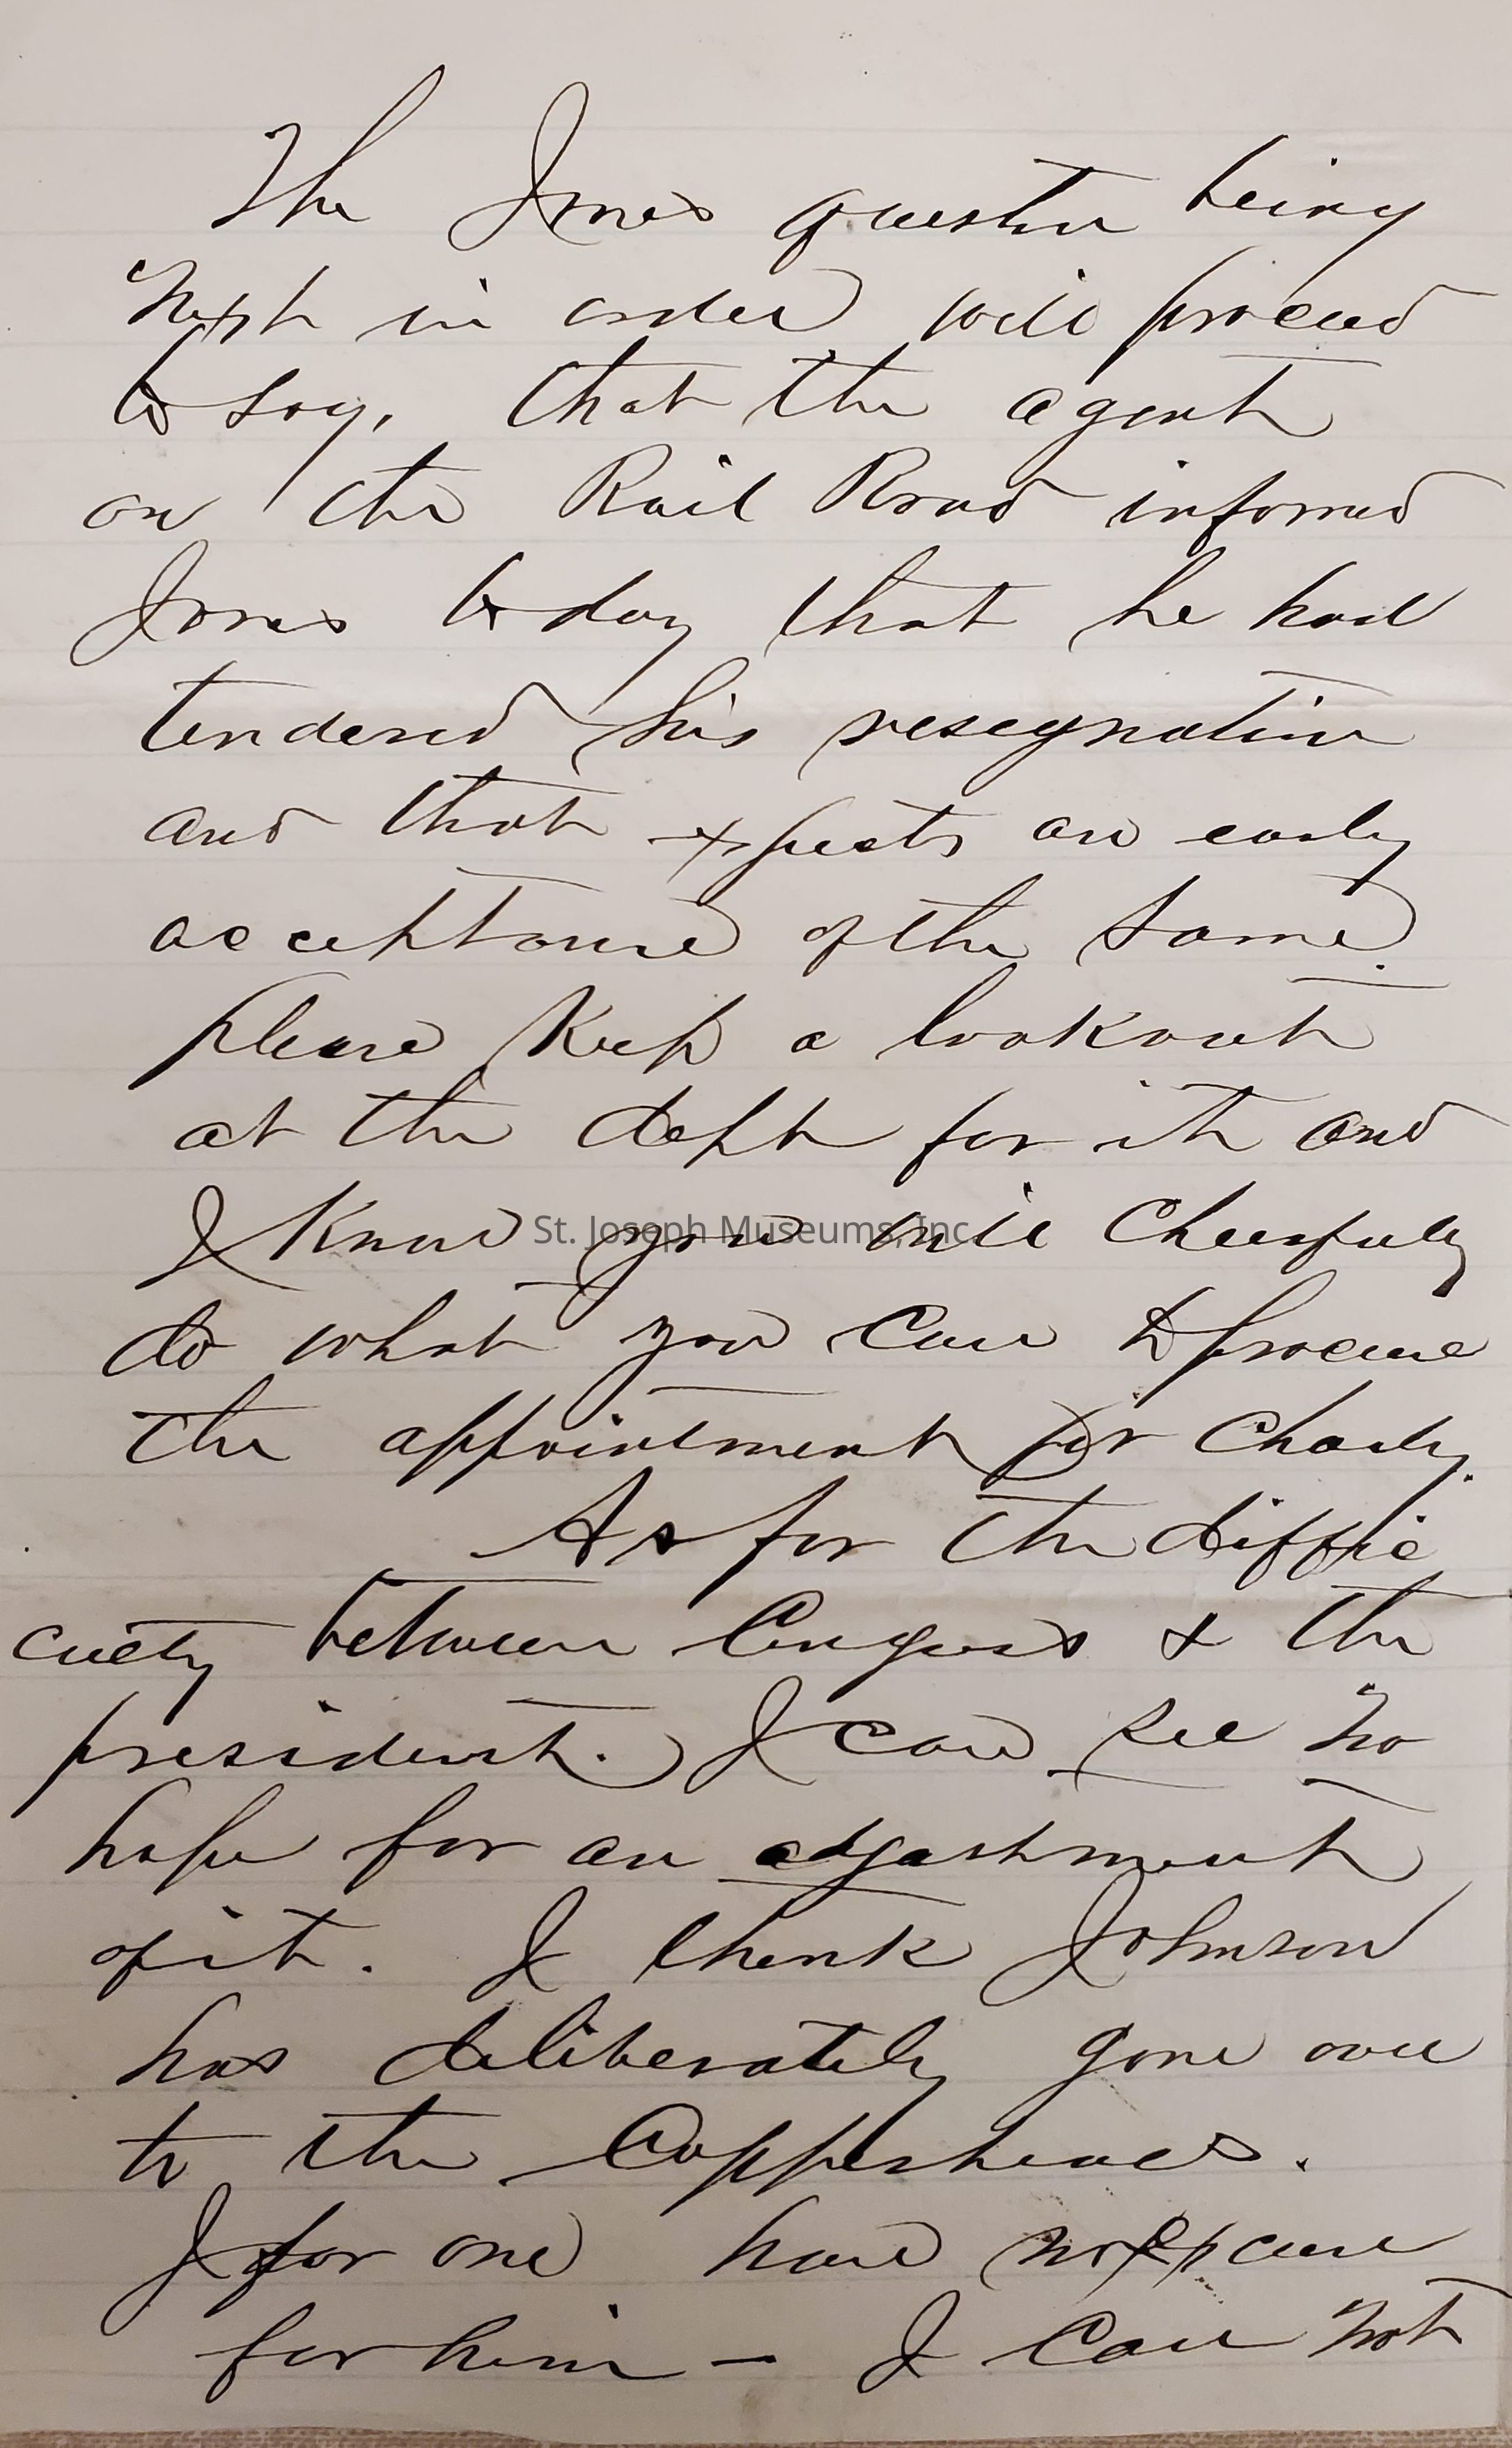 The Jones question being
next in order will proceed
to say, that the agent
on the Rail Road informed
Jones to day that he had
tendered his resegnation
and that expects an early
acceptance of the same.
please Keep a lookout
at the dept for it and
I Know you will cheerfully
do what you can to procure
the appointment for Charly.
As for the diffie
culty between Congress & the
president. I can see no
hope for an adjastment
of it. I think Johnson
has deliberately gone over
to the Copperheads.
I for one have no excuse
for him - I can not
St. Joseph Museums, Inc.